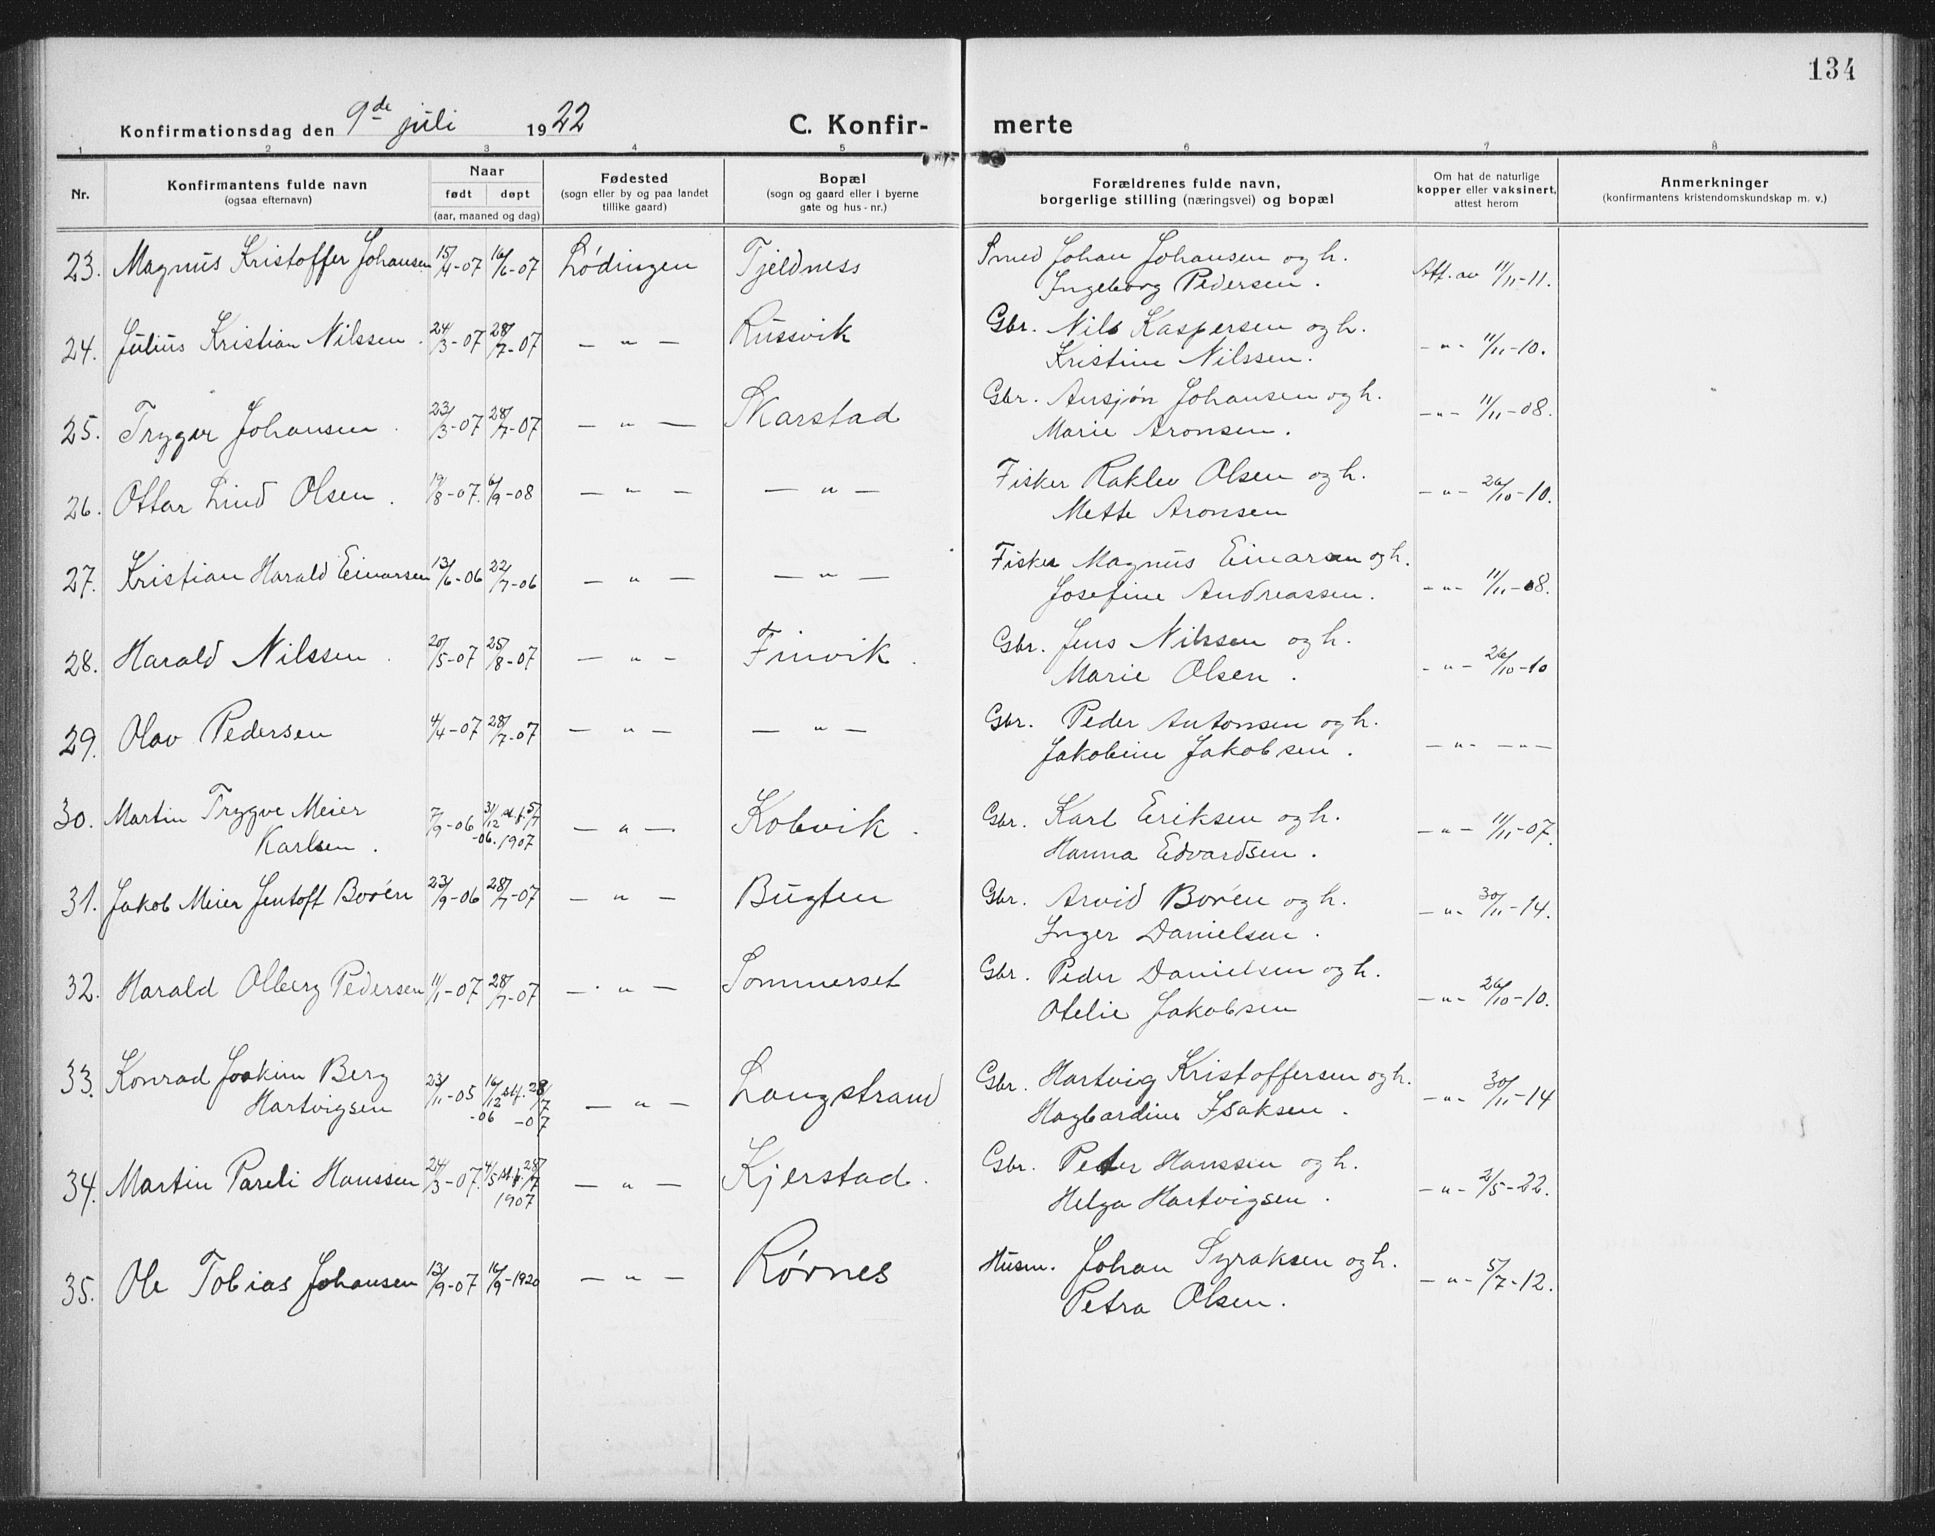 134
Konfirmationsdag den 9de juli 1922 C. Konfir- merte
1 2 3 4 5 6 7 8
Nr. Konfirmantens fulde navn (ogsaa efternavn) Naar født døpt (aar, maaned og dag) Fødested (sogn eller by og paa landet tillike gaard) Bopæl (sogn og gaard eller i byerne gate og hus-nr.) Forældrenes fulde navn, borgerlige stilling (næringsvei) og bopæl Om hat de naturlige kopper eller vaksinert, attest herom Anmerkninger (konfirmantens kristendomskundskap m. v.)
23. Magnus Kristoffer Johansen 15/4-07 16/6-07 Lødingen Tjeldness Smed Johan Johansen og h. Att. av 11/11-11.
Ingeborg Pedersen.
24. Julius Kristian Nilssen. 24/3-07 28/7-07 — " — Russvik Gbr. Nils Kaspersen og h. -"- 11/11-10.
Kristine Nilssen.
25. Trygve Johansen. 23/3-07 28/7-07 — " — Skarstad Gbr. Ansjøn Johansen og h. -"- 11/11-08.
Marie Aronsen.
26. Ottar Lind Olsen. 19/8-07. 6/9-08 — " — — " — Fisker Raklev Olsen og h. -"- 26/10-10.
Mette Aronsen
27. Kristian Harald Einarsen 13/6-06 22/7-06 — " — — " — Fisker Magnus Einarsen og h. -"- 11/11-08.
Josefine Andreassen.
28. Harald Nilssen. 20/5-07 25/8-07 — " — Finvik. Gbr. Jens Nilssen og h. -"- 26/10-10
Marie Olsen.
29. Olav Pedersen 4/4-07 28/7-07 — " — — " — Gbr. Peder Antonsen og h. -"- -"-
Jakobine Jakobsen.
30. Martin Trygve Meier 7/9-06 31/12 st.f. 5/7 — " — Kobvik. Gbr. Karl Eriksen og h. -"- 11/11-07.
Karlsen. -06. 1907 Hanna Edvardsen.
31. Jakob Meier Jentoft Borén 23/9-06 28/7-07 — " — Bugten Gbr. Arvid Borén og h. -"- 30/11-14.
Inger Danielsen.
32. Harald Olberg Pedersen 11/1-07 28/7-07 — " — Sommerset Gbr. Peder Danielsen og h. -"- 26/10-10.
Otelie Jakobsen
33. Konrad Joakim Berg 23/11-05 16/12 stf. 28/7 — " — Langstrand Gbr. Hartvig Kristoffersen og h. -"- 30/11-14
Hartvigsen -06 -07 Hagbardine Isaksen.
34. Martin Pareli Hanssen 24/3-07. 4/5 st.f. 28/7 — " — Kjerstad. Gbr. Peter Hanssen og h. -"- 2/5-22.
1907 Helga Hartvigsen.
35. Ole Tobias Johansen 13/9-07 16/9-1920 — " — Rørnes Husm. Johan Syraksen og h. -"- 5/7-12.
Petra Olsen.